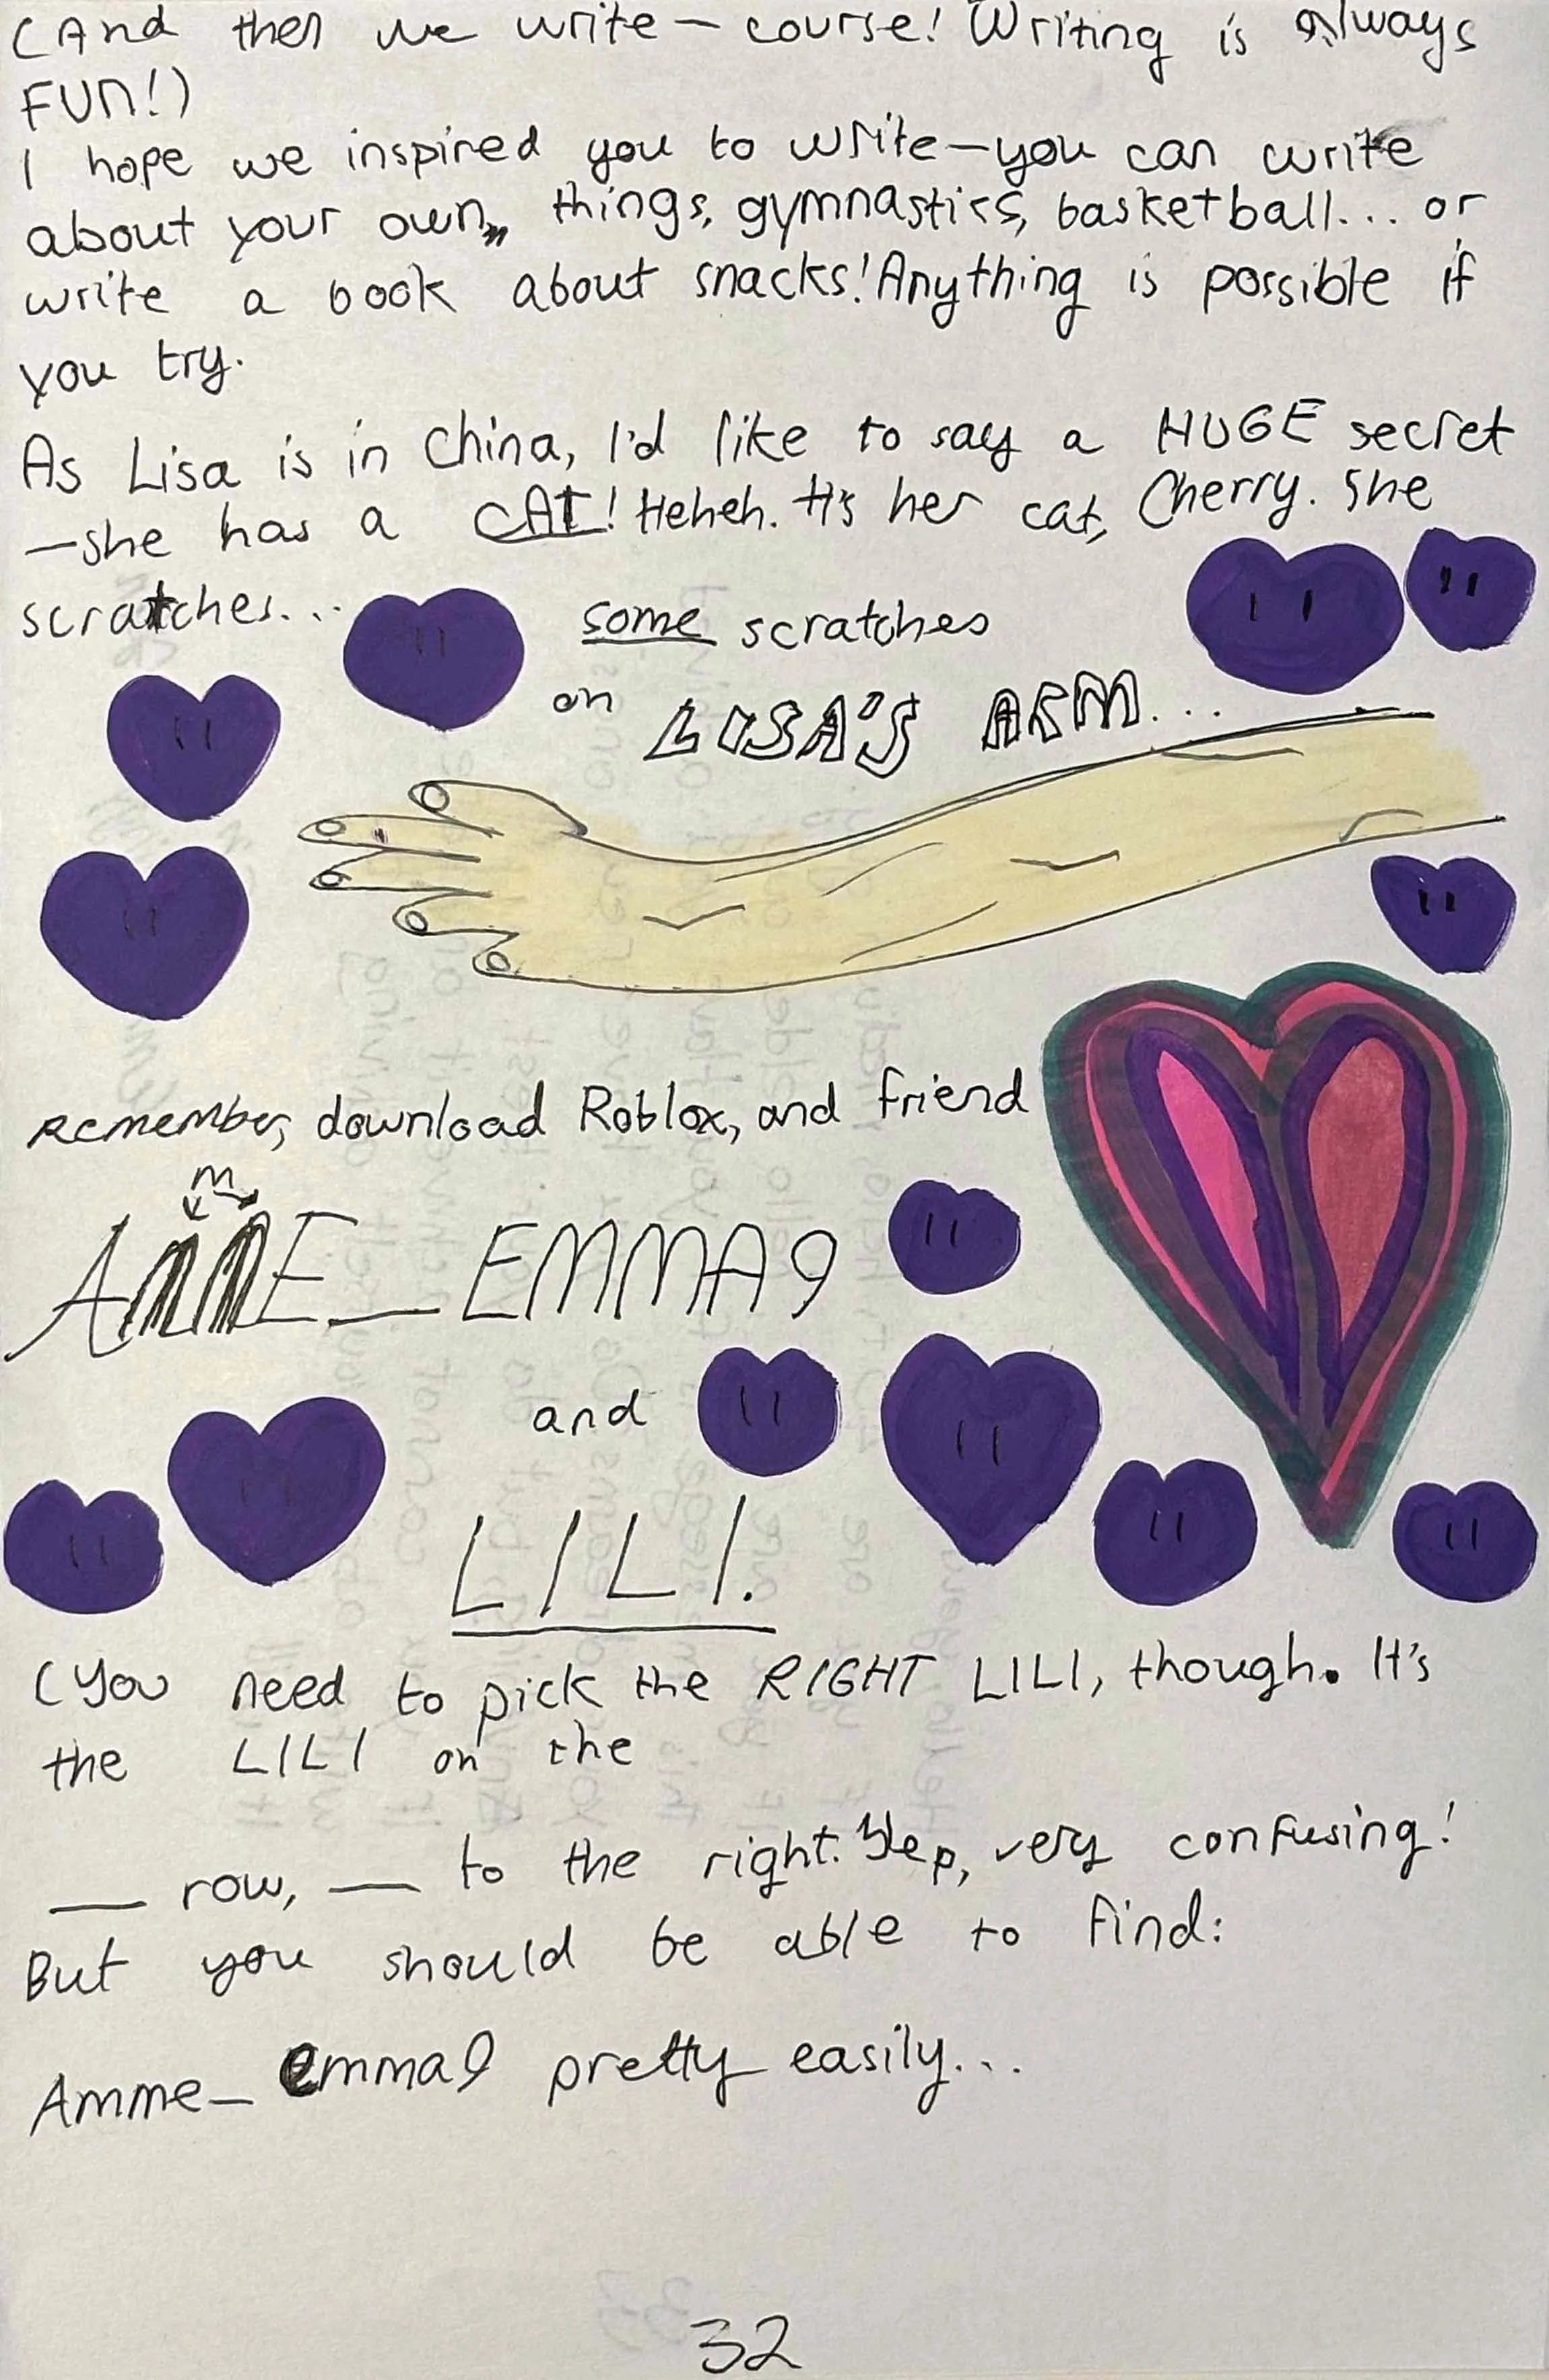 (And then we write – course! Writing is Always
FUN!)
I hope we inspired you to write – you can write
about your own,, things, gymnastics, basketball... or
write a book about snacks! Anything is possible if
you try.
As Lisa is in China, I'd like to say a HUGE secret
– she has a CAT! Heheh. It's her cat, Cherry. She
scratches...
some scratches
on LISA'S ARM...
Remember, download Roblox, and friend
m
AMME_EMMA9
and
LILI.
(You need to pick the RIGHT LILI, though. It's
the LILI on the
__ row, __ to the right. Yep, very confusing!
But you should be able to find:
Amme_emma9 pretty easily...
32